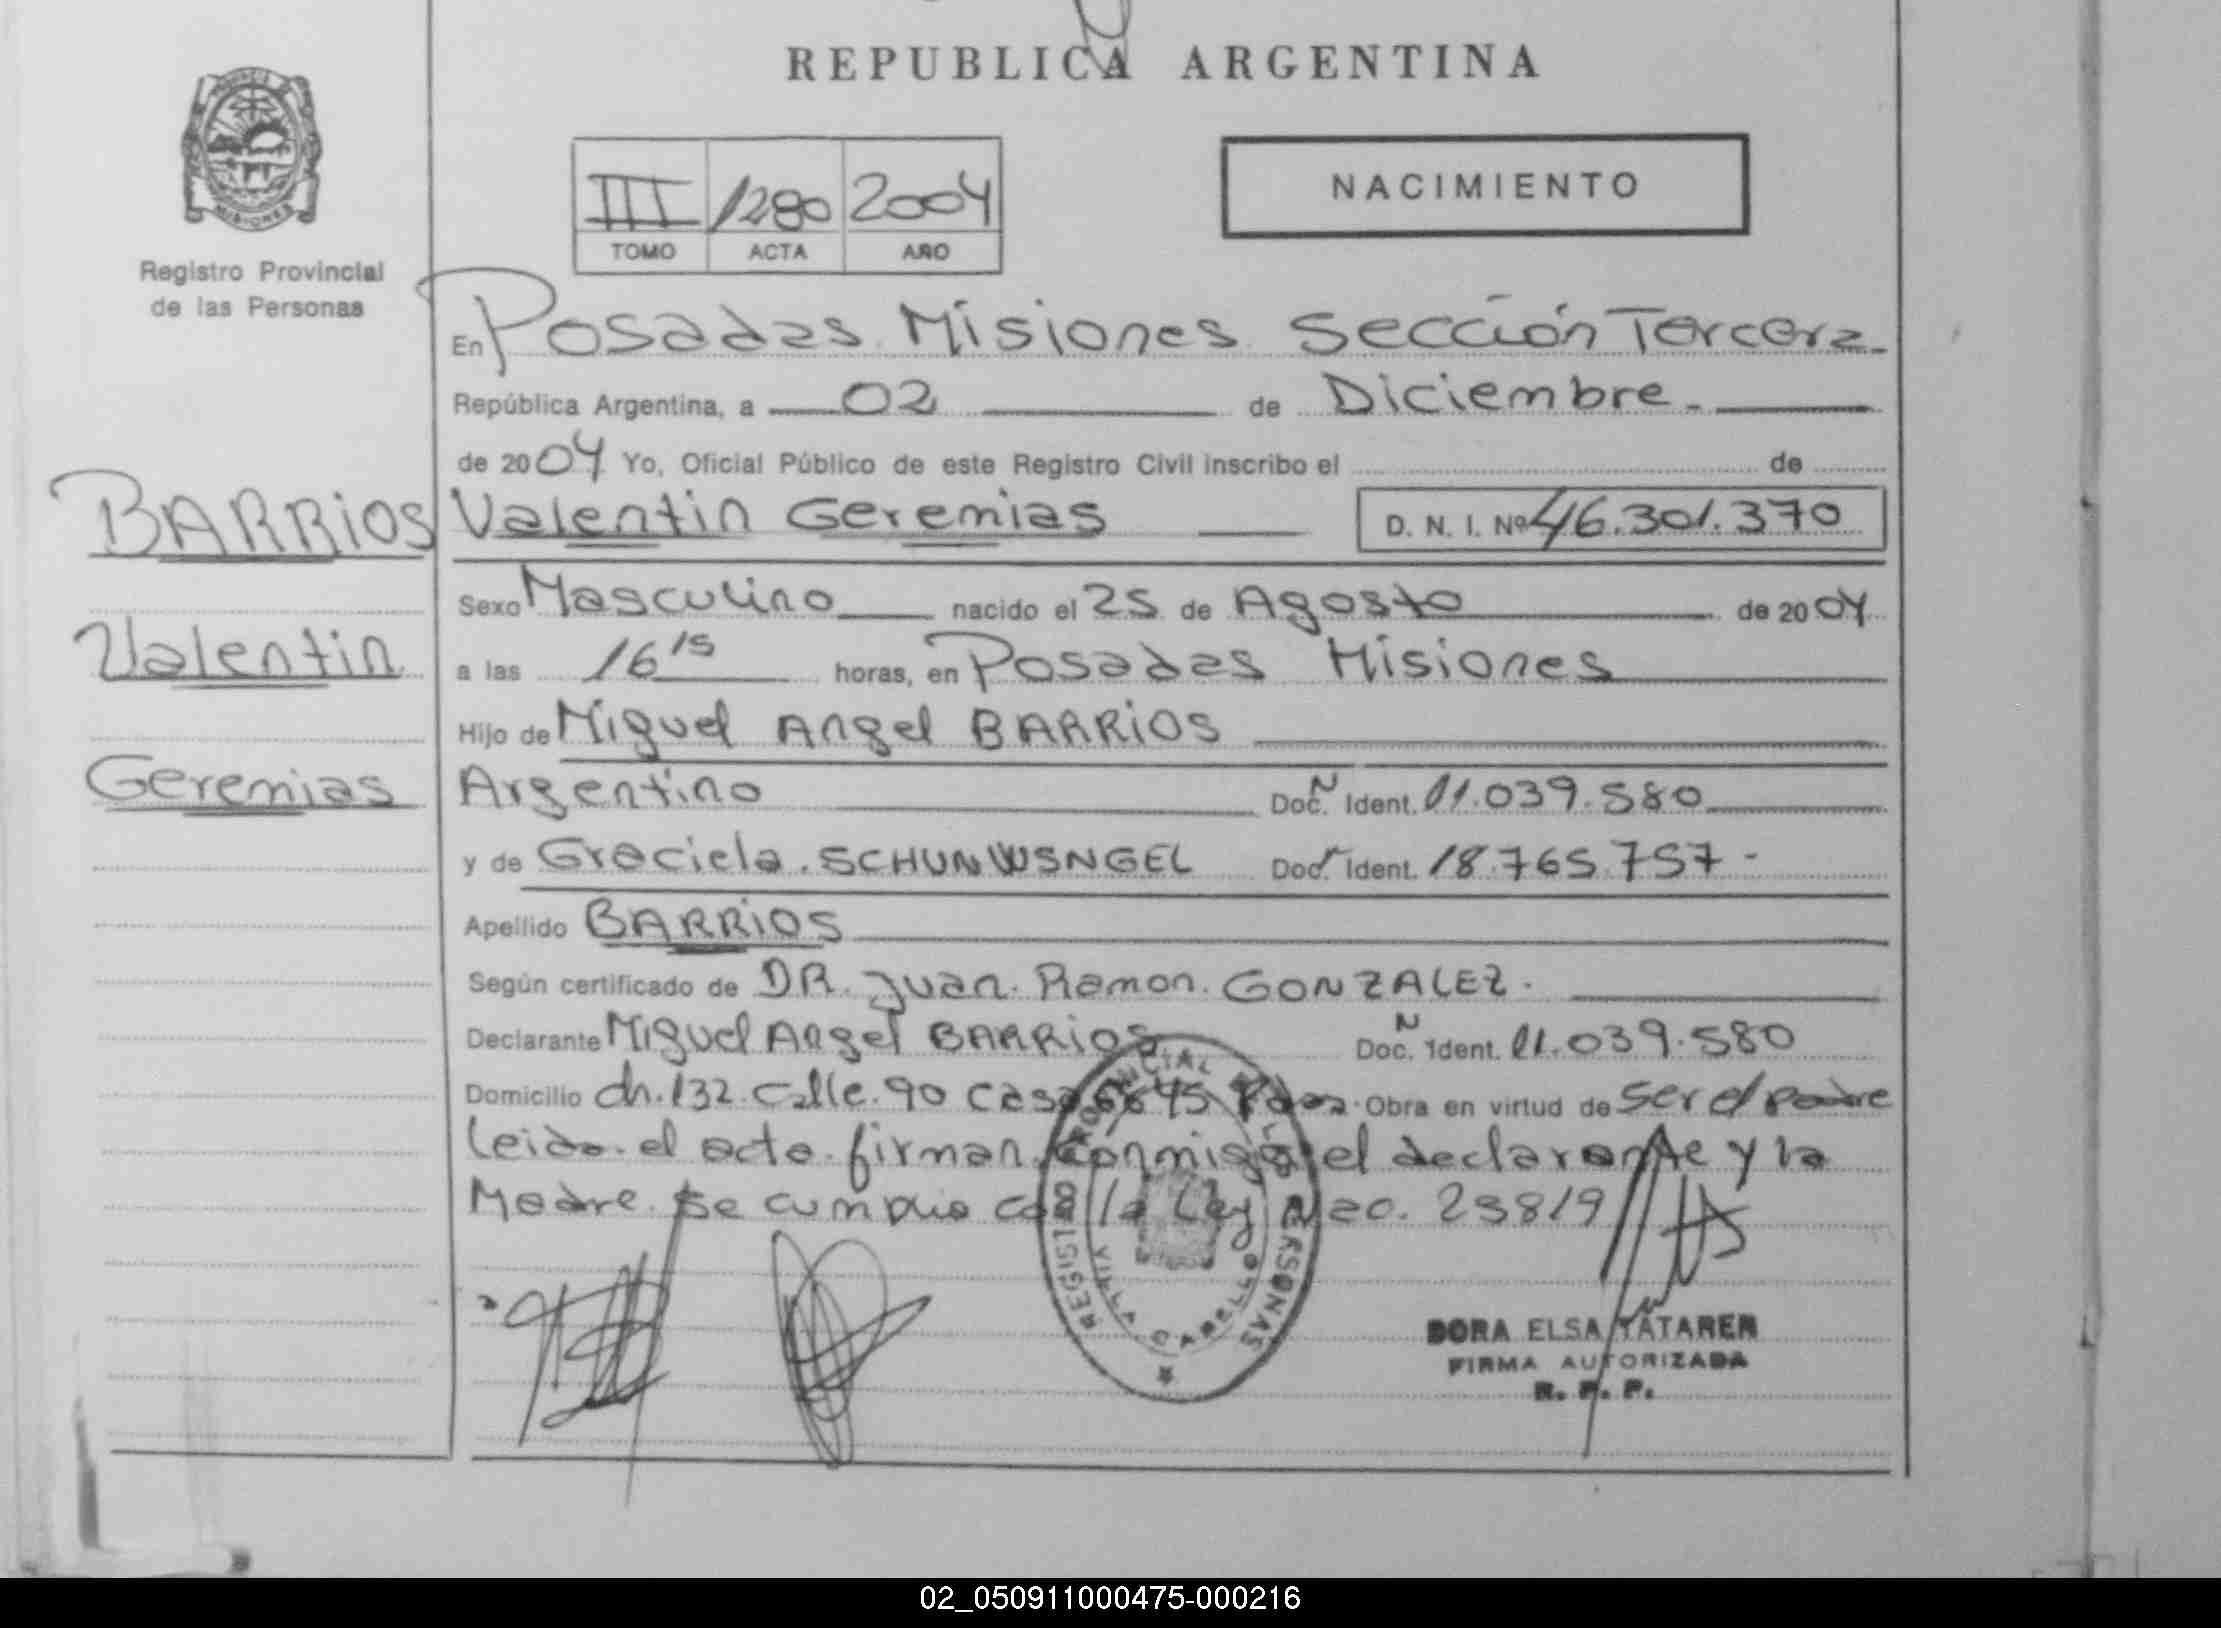 REPUBLICA ARGENTINA
MISIONES
Registro Provincial
de las Personas
III 1280 2004
TOMO ACTA AÑO
NACIMIENTO
En Posadas Misiones Sección Tercera
República Argentina, a 02 de Diciembre
de 2004 Yo, Oficial Público de este Registro Civil inscribo el de
BARRIOS
Valentin
Geremias
Valentin Geremias D. N. I. Nº 46.301.370
Sexo Masculino nacido el 25 de Agosto de 2004
a las 16 15 horas, en Posadas Misiones
Hijo de Miguel Angel BARRIOS
Argentino Doc. N Ident. 11.039.580
y de Graciela. SCHUNWSNGEL Doc. Ident. 18.765.757 -
Apellido BARRIOS
Según certificado de DR. Juan. Ramon. GONZALEZ.
Declarante Miguel Angel BARRIOS Doc. N Ident. 11.039.580
Domicilio ch. 132. calle. 90 casa 6645 Pdas. Obra en virtud de ser el padre
leida. el acta. firman. conmigo el declarante y la
Madre. Se cumplio con la Ley Nac. 23819
REGISTRO PROVINCIAL DE LAS PERSONAS
VILLA CABELLO
DORA ELSA TATAREN
FIRMA AUTORIZADA
R. P. P.
02_050911000475-000216